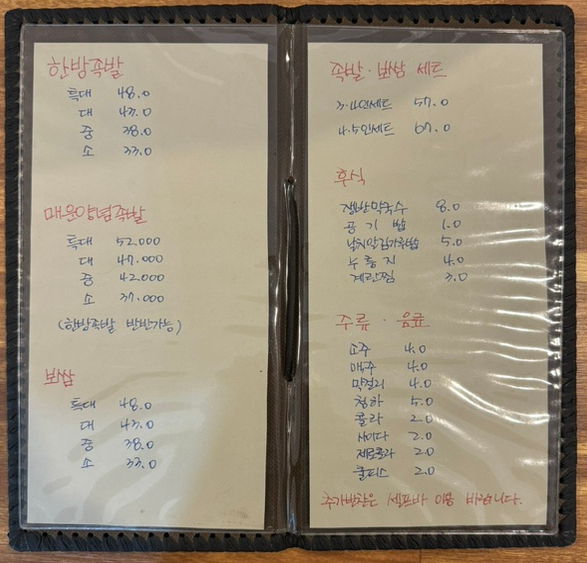 한방족발
특대 48.0
대 43.0
중 38.0
소 33.0
매운양념족발
특대 52.000
대 47.000
중 42.000
소 37.000
(한방족발 반반가능)
보쌈
특대 48.0
대 43.0
중 38.0
소 33.0
족발·보쌈 세트
3·4인세트 57.0
4·5인세트 67.0
후식
쟁반막국수 8.0
공기밥 1.0
날치알김가루밥 5.0
누룽지 4.0
계란찜 3.0
주류·음료
소주 4.0
매주 4.0
막걸리 4.0
청하 5.0
콜라 2.0
사이다 2.0
제로콜라 2.0
쿨피스 2.0
추가반찬은 셀프바 이용 바랍니다.